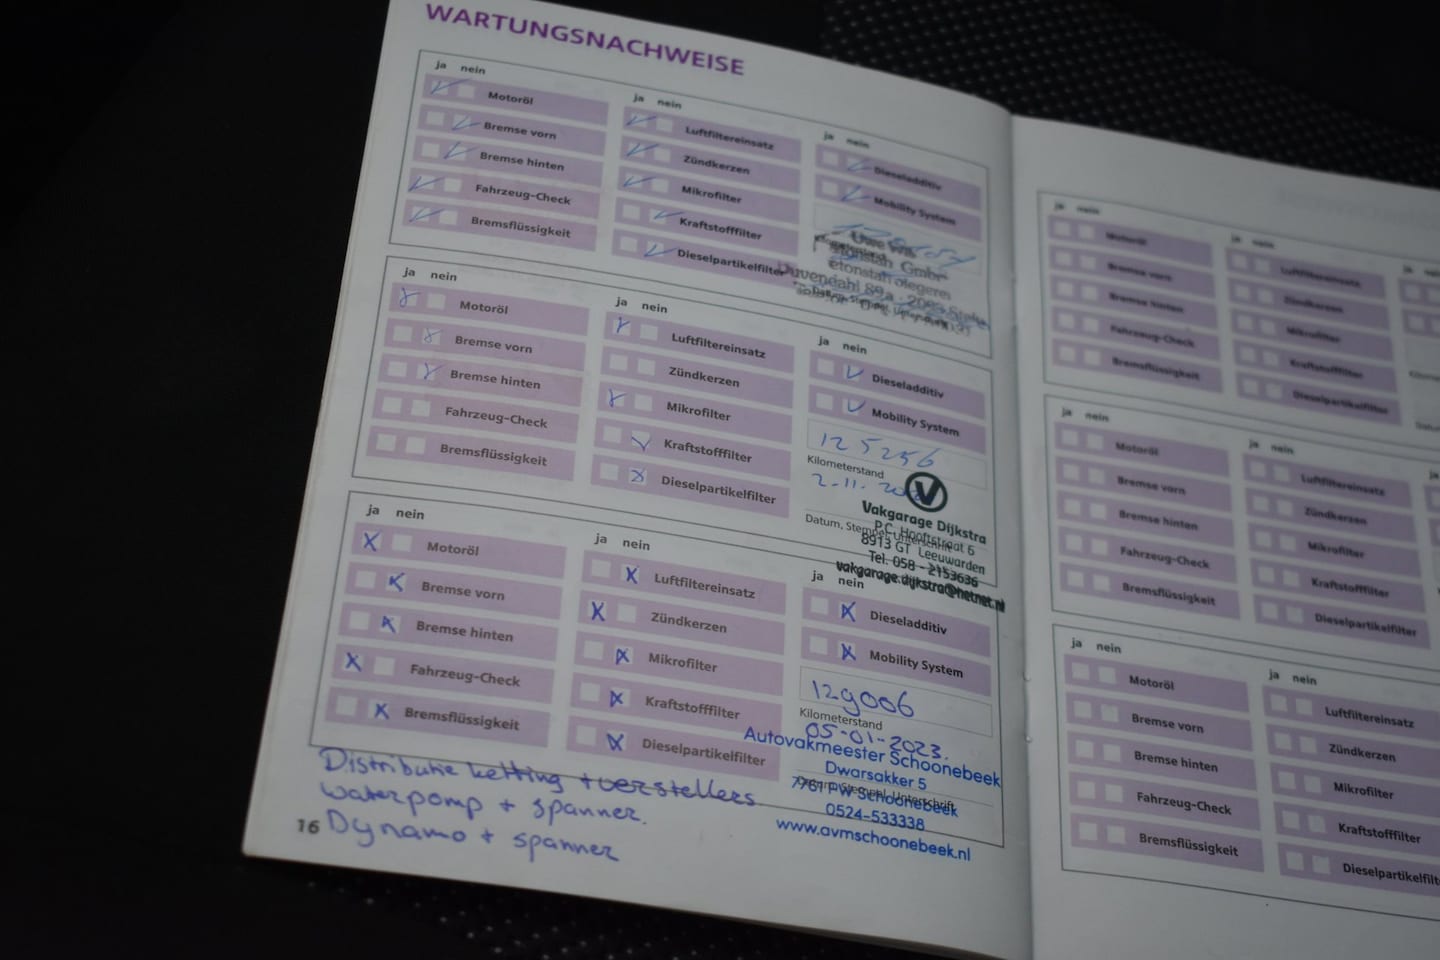 WARTUNGSNACHWEISE
ja nein
Motoröl
Bremse vorn
Bremse hinten
Fahrzeug-Check
Bremsflüssigkeit
ja nein
Luftfiltereinsatz
Zündkerzen
Mikrofilter
Kraftstofffilter
Dieselpartikelfilter
ja nein
Dieseladditiv
Mobility System
ja nein
Motoröl
Bremse vorn
Bremse hinten
Fahrzeug-Check
Bremsflüssigkeit
ja nein
Luftfiltereinsatz
Zündkerzen
Mikrofilter
Kraftstofffilter
Dieselpartikelfilter
ja nein
Dieseladditiv
Mobility System
125256
Kilometerstand
2-11-
Datum, Stempel, Unterschrift
Vakgarage Dijkstra
P.C. Hooftstraat 6
8913 GT Leeuwarden
Tel. 058 - 2153636
vakgarage.dijkstra@hetnet.nl
ja nein
Motoröl
Bremse vorn
Bremse hinten
Fahrzeug-Check
Bremsflüssigkeit
ja nein
Luftfiltereinsatz
Zündkerzen
Mikrofilter
Kraftstofffilter
Dieselpartikelfilter
ja nein
Dieseladditiv
Mobility System
129006
Kilometerstand
05-01-2023.
Autovakmeester Schoonebeek
Dwarsakker 5
7761 PW Schoonebeek
Datum, Stempel, Unterschrift
0524-533338
www.avmschoonebeek.nl
Distributie ketting + verstellers
waterpomp + spanner.
Dynamo + spanner
16
ja nein
Motoröl
Bremse vorn
Bremse hinten
Fahrzeug-Check
Bremsflüssigkeit
ja nein
Luftfiltereinsatz
Zündkerzen
Mikrofilter
Kraftstofffilter
Dieselpartikelfilter
ja
ja nein
Motoröl
Bremse vorn
Bremse hinten
Fahrzeug-Check
Bremsflüssigkeit
ja nein
Luftfiltereinsatz
Zündkerzen
Mikrofilter
Kraftstofffilter
Dieselpartikelfilter
ja nein
Motoröl
Bremse vorn
Bremse hinten
Fahrzeug-Check
Bremsflüssigkeit
ja nein
Luftfiltereinsatz
Zündkerzen
Mikrofilter
Kraftstofffilter